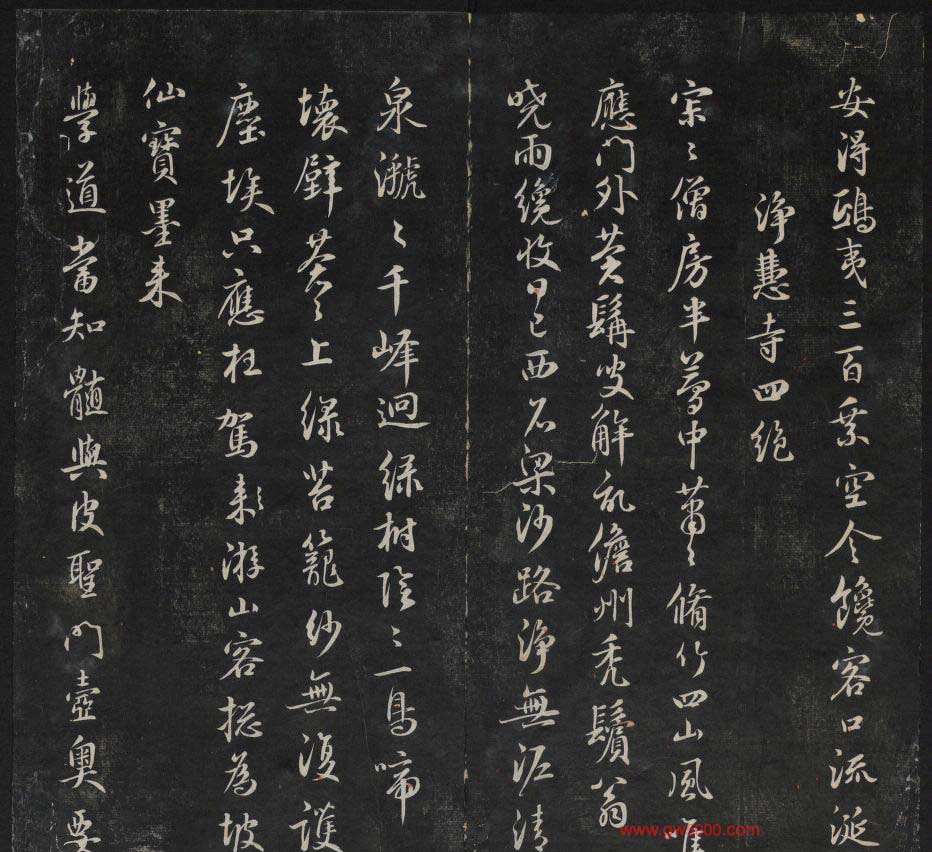 安得鴟夷三百乘空令饞客口流涎
淨慧寺四絕
寂〻僧房半夢中蕭〻脩竹四山風唯
應門外蒼髯叟解記儋州禿鬢翁
曉雨纔收日已西石梁沙路淨無泥清
泉㶁〻千峰迴綠樹陰〻一鳥啼
壞壁蒼〻上綠苔籠紗無復護
塵埃只應枉駕来游山客揔為坡
仙寶墨来
學道當知髓與皮聖門壼奧要